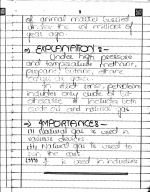 of animal matter buried
under the soil millions of
years ago.
→ EXPLANATION :-
Under high pressure
and temperature methane,
propane, butane, ethane
In strict sense, petroleum
includes only crude oil but
includes both
crude oil and natural gas
→ IMPORTANCE :-
(i) Natural gas is used in
various
(ii) Natural gas is used to
run the cars
(iii) It is used in industries